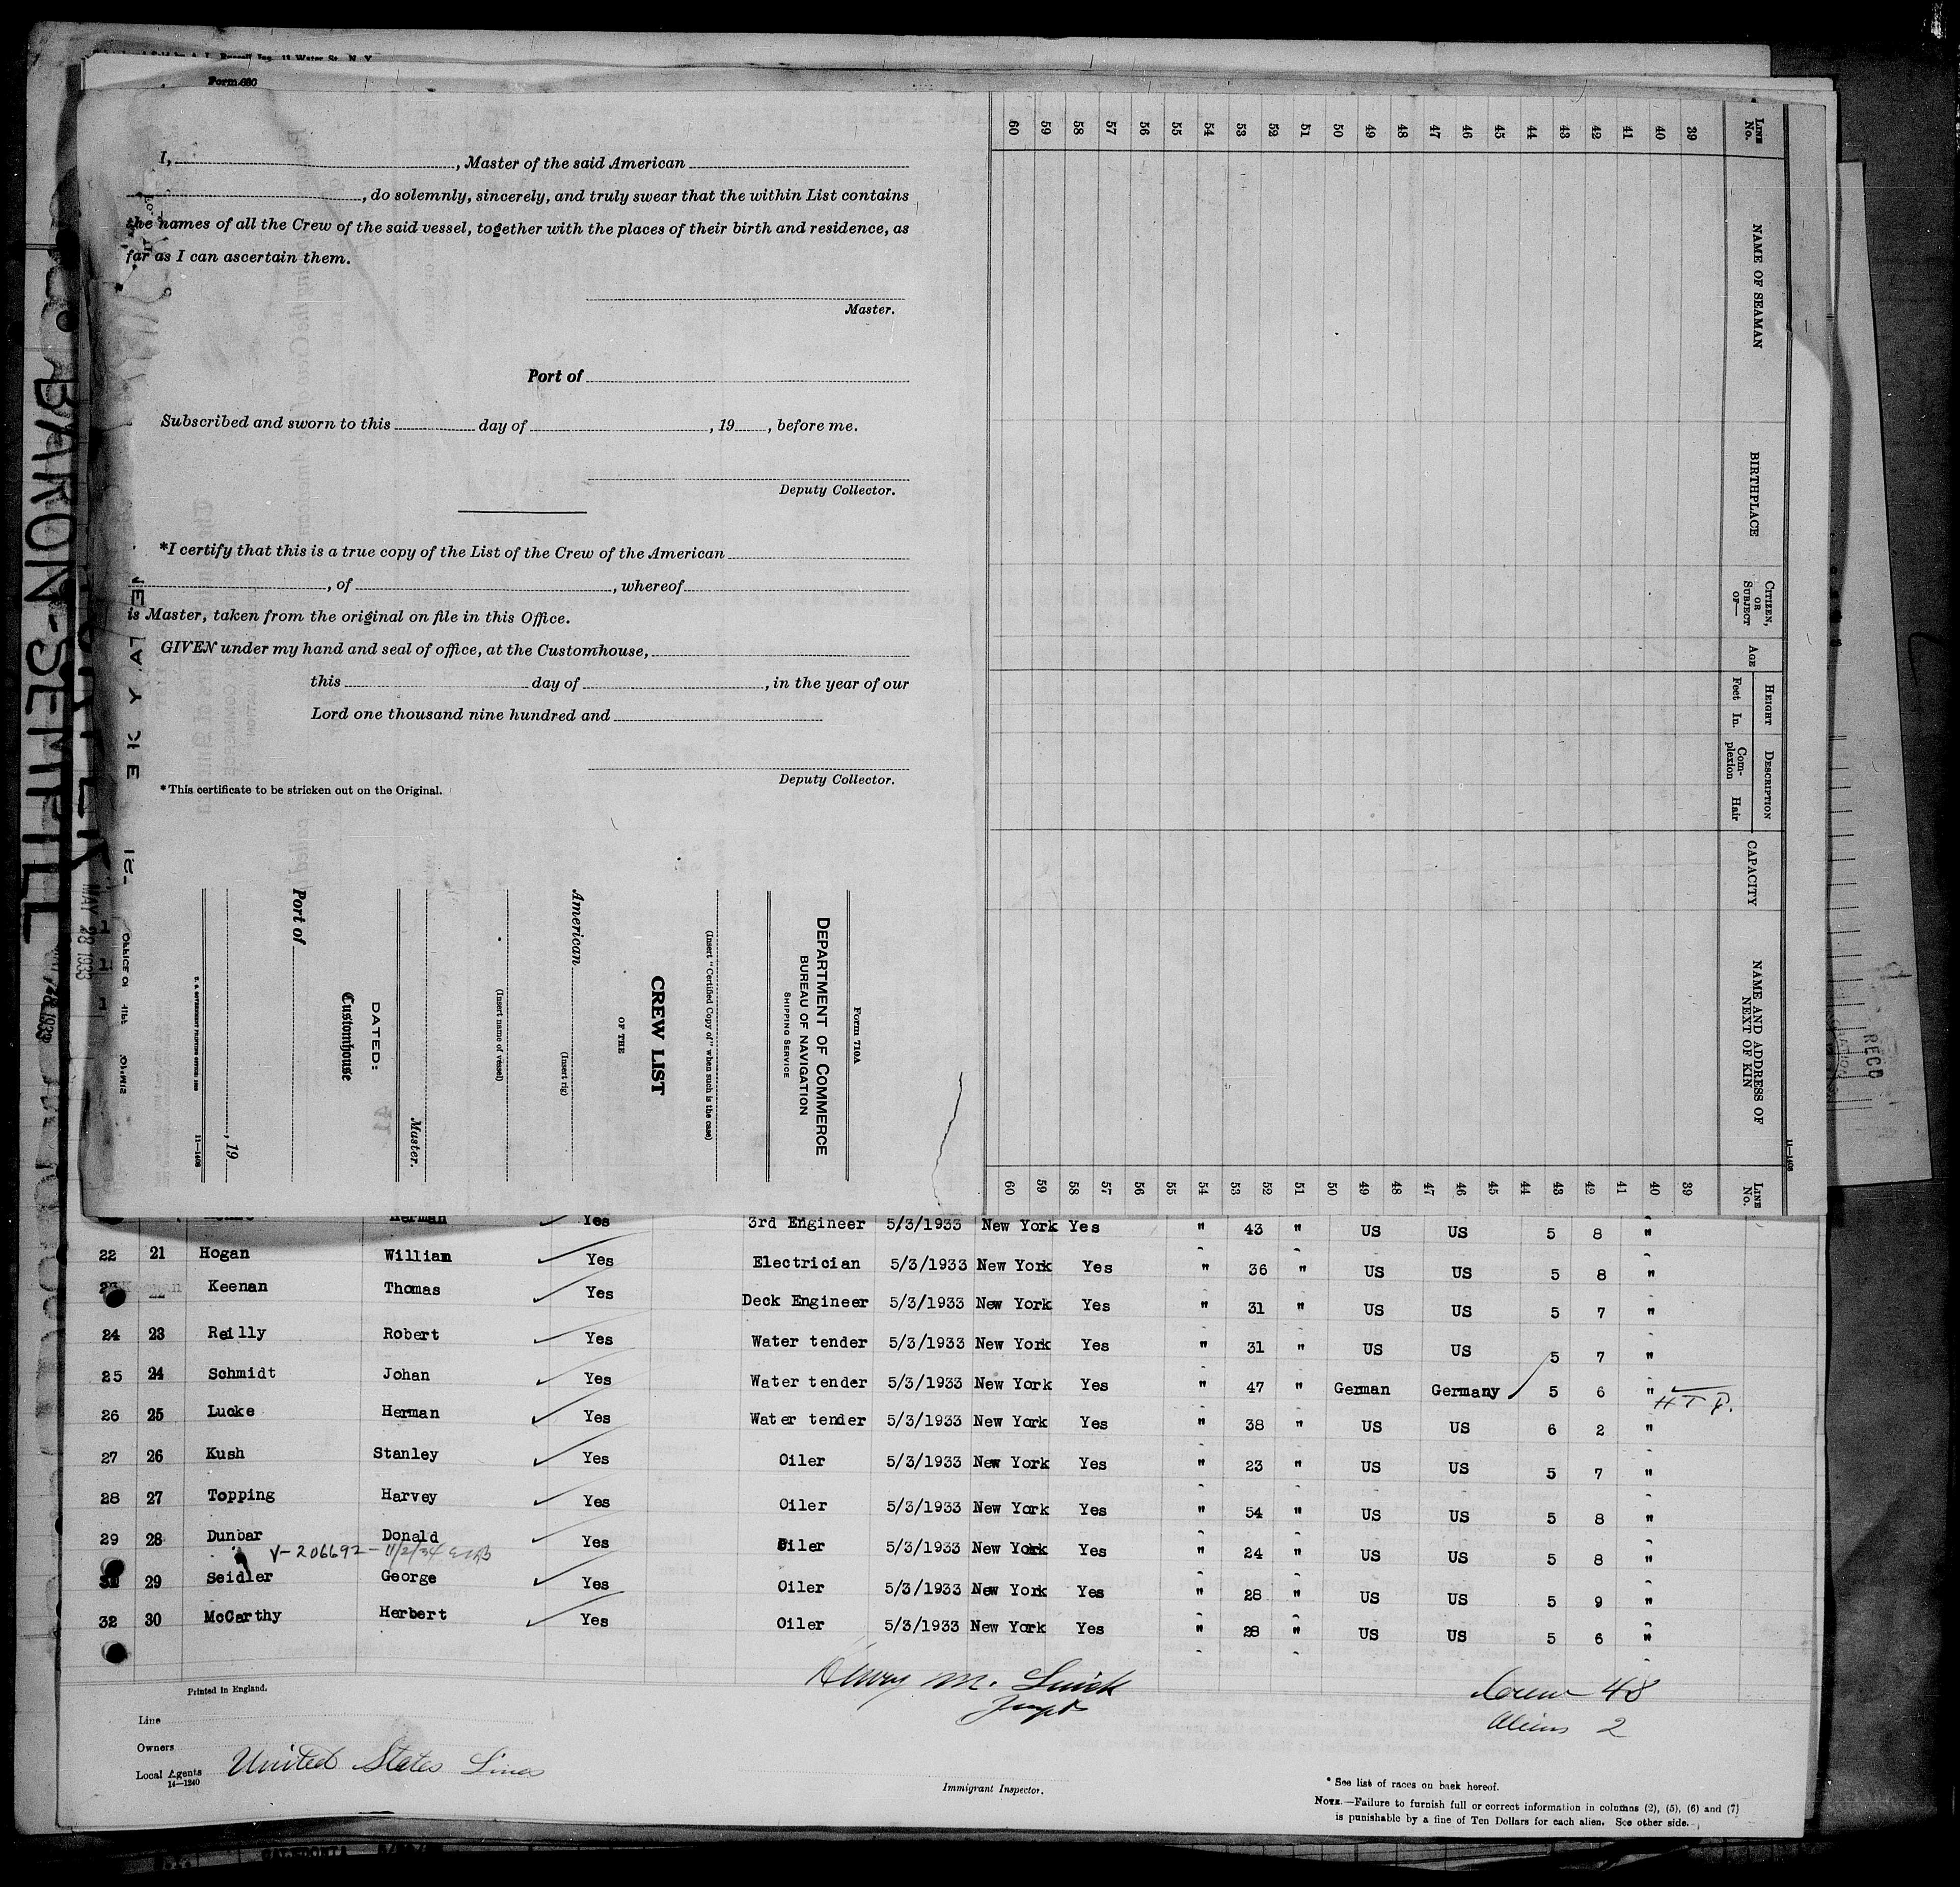 Form 680
I, , Master of the said American
, do solemnly, sincerely, and truly swear that the within List contains
the names of all the Crew of the said vessel, together with the places of their birth and residence, as
far as I can ascertain them.
Master.
Port of
Subscribed and sworn to this day of , 19 , before me.
Deputy Collector.
*I certify that this is a true copy of the List of the Crew of the American
, of , whereof
is Master, taken from the original on file in this Office.
GIVEN under my hand and seal of office, at the Customhouse,
this day of , in the year of our
Lord one thousand nine hundred and
Deputy Collector.
*This certificate to be stricken out on the Original.
Form 710A
DEPARTMENT OF COMMERCE
BUREAU OF NAVIGATION
SHIPPING SERVICE
(Insert "Certified Copy of" when such is the case)
CREW LIST
OF THE
American
(Insert rig)
(Insert name of vessel)
Master.
DATED:
Customhouse
Port of
, 19
11—1408
LINE No.
NAME OF SEAMAN
BIRTHPLACE
CITIZEN, OR SUBJECT OF—
AGE
HEIGHT
Feet In.
DESCRIPTION
Complexion Hair
CAPACITY
NAME AND ADDRESS OF NEXT OF KIN
LINE No.
11—1408
60 59 58 57 56 55 54 53 52 51 50 49 48 47 46 45 44 43 42 41 40 39
60 59 58 57 56 55 54 53 52 51 50 49 48 47 46 45 44 43 42 41 40 39
BARON-SEMPILL
MAY 28 1933
RECD
Herman Yes 3rd Engineer 5/3/1933 New York Yes " 43 " US US 5 8 "
22 21 Hogan William Yes Electrician 5/3/1933 New York Yes " 36 " US US 5 8 "
23 22 Keenan Thomas Yes Deck Engineer 5/3/1933 New York Yes " 31 " US US 5 7 "
24 23 Reilly Robert Yes Water tender 5/3/1933 New York Yes " 31 " US US 5 7 "
25 24 Schmidt Johan Yes Water tender 5/3/1933 New York Yes " 47 " German Germany 5 6 "
26 25 Lucke Herman Yes Water tender 5/3/1933 New York Yes " 38 " US US 6 2 "
27 26 Kush Stanley Yes Oiler 5/3/1933 New York Yes " 23 " US US 5 7 "
28 27 Topping Harvey Yes Oiler 5/3/1933 New York Yes " 54 " US US 5 8 "
29 28 Dunbar Donald Yes Oiler 5/3/1933 New York Yes " 24 " US US 5 8 "
V-206692 - 11/2/34
31 29 Seidler George Yes Oiler 5/3/1933 New York Yes " 28 " US US 5 9 "
32 30 McCarthy Herbert Yes Oiler 5/3/1933 New York Yes " 28 " US US 5 6 "
Printed in England.
Crew 48
Aliens 2
Line
Owners
Local Agents United States Lines
14—1240
Immigrant Inspector.
* See list of races on back hereof.
NOTE.—Failure to furnish full or correct information in columns (2), (5), (6) and (7)
is punishable by a fine of Ten Dollars for each alien. See other side.